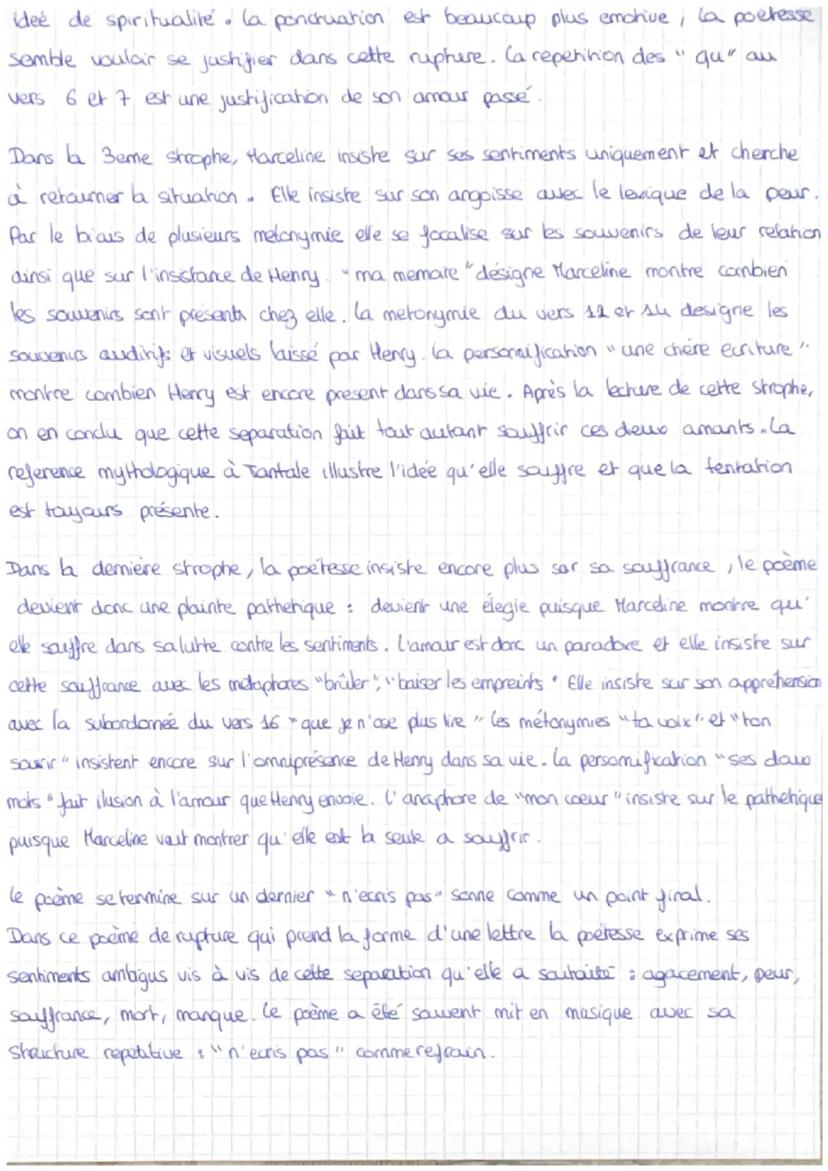 ideé de spiritualité. La poncruation est beaucoup plus emotive, la poetesse
semble vouloir se justifier dans cette rupture. La repetition des "qu" au
vers 6 et 7 est une justification de son amour passé.
Dans la 3eme strophe, Marceline insiste sur ses sentiments uniquement et cherche
à retourner la situation. Elle insiste sur son angoisse avec le lexique de la peur.
Par le biais de plusieurs metonymie elle se focalise sur les souvenirs de leur relation
ainsi que sur l'insistance de Henry. "ma memoire" désigne Marceline montre combien
les souvenirs sont présents chez elle. La metonymie du vers 12 et 14 designe les
souvenirs auditifs et visuels laissé par Henry. La personnification "une chère ecriture".
montre combien Henry est encore present dans sa vie. Après la lecture de cette strophe,
on en condu que cette separation fait tout autant souffrir ces deux amants. La
reference mythologique à Tantale illustre l'idée qu'elle souffre et que la tentation
est toujours présente.
Dans la dernière strophe, la poétesse insiste encore plus sur sa souffrance, le poème
devient donc une plainte pathetique : devient une élegie puisque Marceline montre qu'
elle souffre dans sa lutte contre les sentiments. L'amour est donc un paradoxe et elle insiste sur
cette souffrance avec les metaphores "brûler", "baiser les empreints" Elle insiste sur son appréhension
avec la subordonnée du vers 16 "que je n'ose plus lire" Les métonymies "ta voix" et "ton
sourir" insistent encore sur l'omniprésence de Henry dans sa vie. La personnification "ses doux
mots" fait ilusion à l'amour que Henry envoie. L'anaphore de "mon coeur" insiste sur le pathétique
puisque Marceline veut montrer qu'elle est la seule a souffrir.
Le poème se termine sur un dernier "n'ecris pas" sonne comme un point final.
Dans ce poème de rupture qui prend la forme d'une lettre la poétesse exprime ses
sentiments ambigus vis à vis de cette separation qu'elle a souhaité : agacement, peur,
souffrance, mort, manque. Le poème a été souvent mit en musique avec sa
structure repetitive : "n'ecris pas" comme refrain.